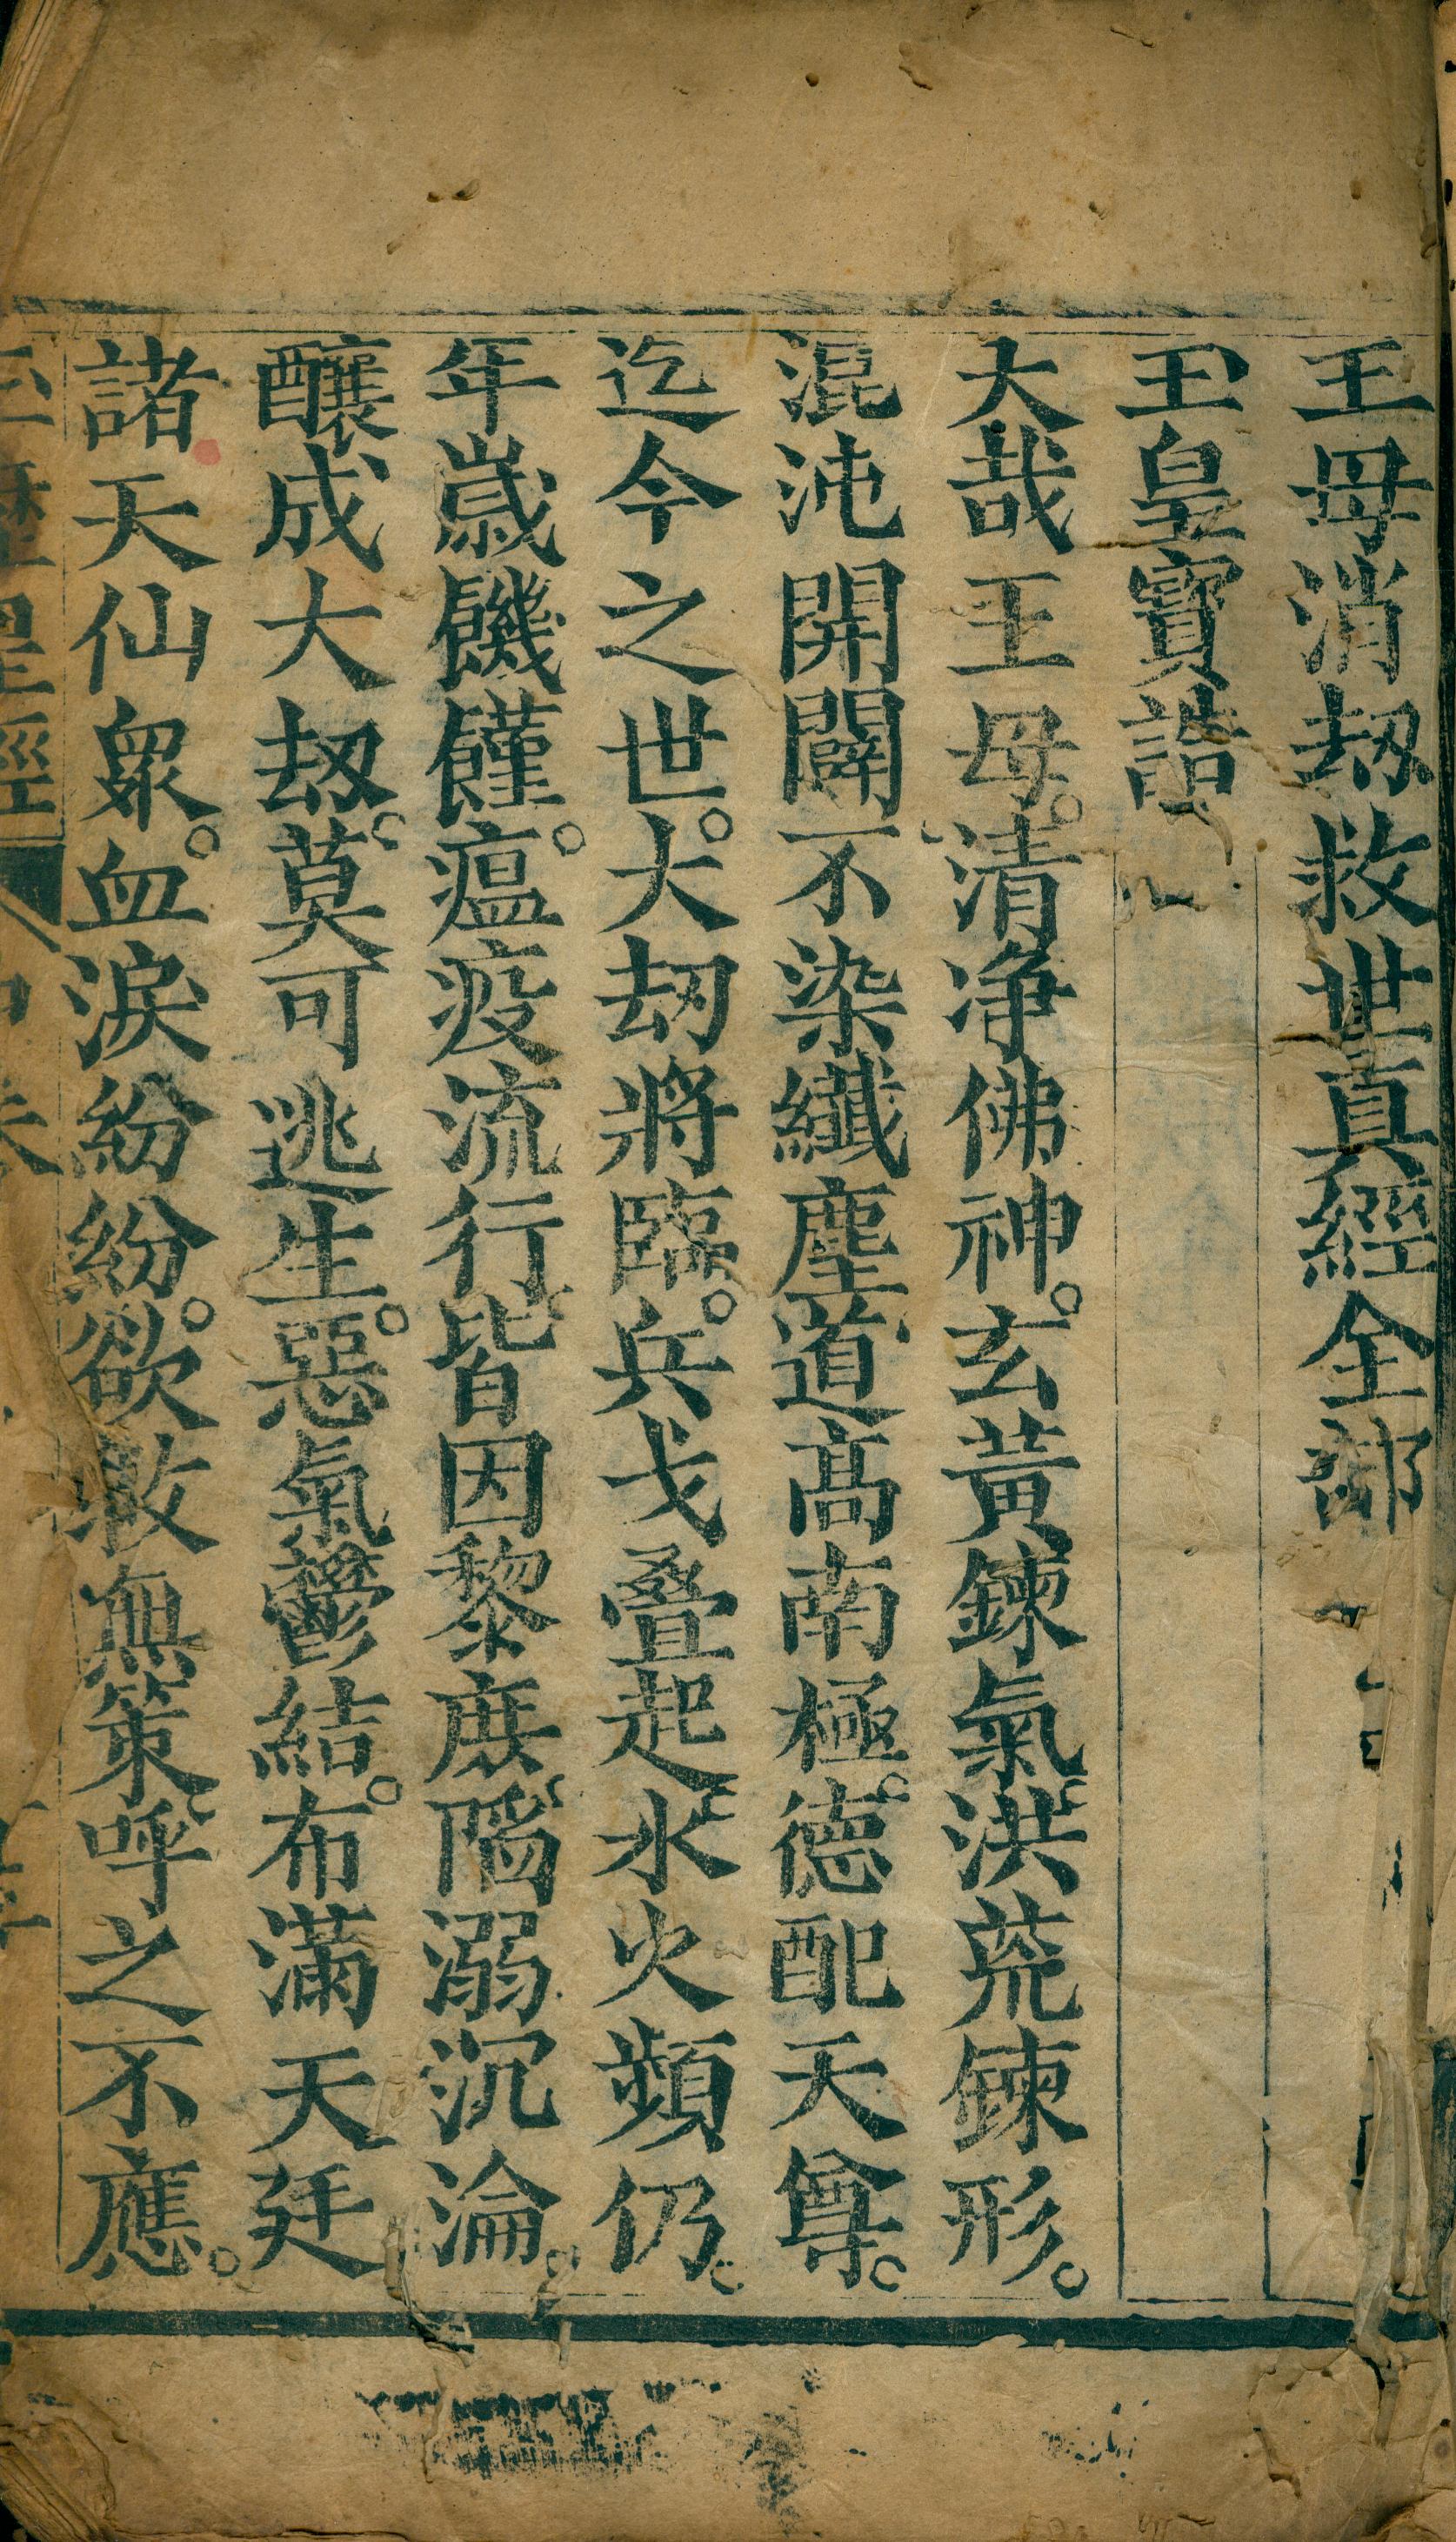 王母消刼救世真經全部
玉皇寶誥
大哉王母。清净佛神。玄黃鍊氣。洪荒鍊形。
混沌開闢。不染纖塵。道高南極。德配天尊。
迄今之世。大刼將臨。兵戈疊起。水火頻仍。
年歲饑饉。瘟疫流行。皆因黎庶。陷溺沉淪。
釀成大刼。莫可逃生。惡氣鬱結。布滿天廷
諸天仙衆。血淚紛紛。欲救無策。呼之不應。